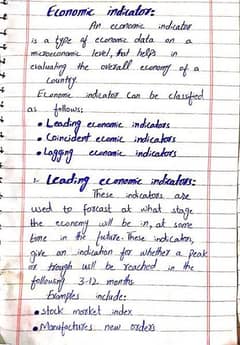 Economic indicator:
An economic indicator
is a type of economic data on a
microeconomic level, that helps in
evaluating the overall economy of a
country.
Economic indicator can be classified
as follows:
• Leading economic indicators
• Coincident ecomic indicators
• Lagging economic indicators
1- Leading economic indicators:
These indicators are
used to forcast at what stage
the economy will be in, at some
time in the future. These indicators,
give an indication for whether a peak
or trough will be reached in the
following 3-12 months
Examples include:
• stock market index
• Manufactures new orders